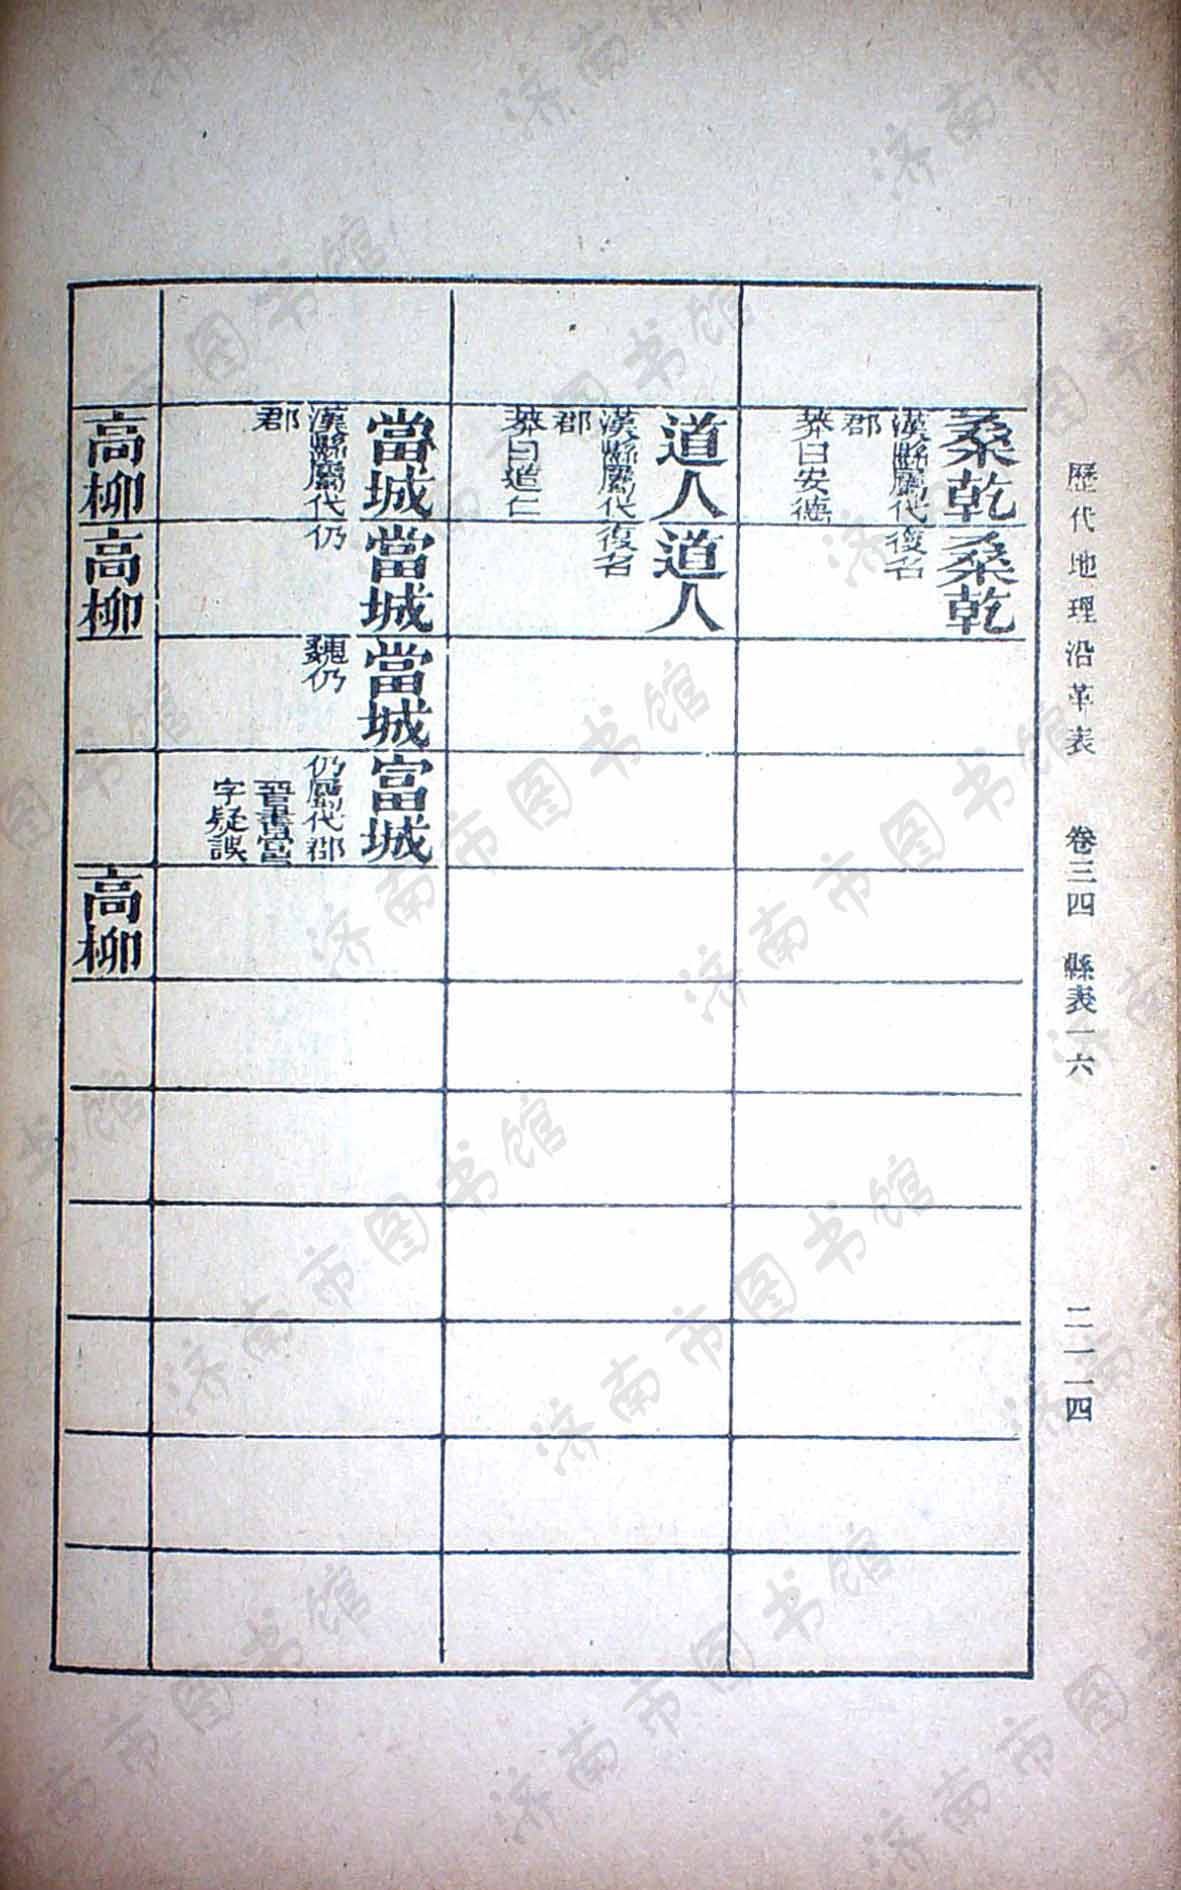 歷代地理沿革表　卷三四　縣表一六　二一一四
桑乾
漢縣屬代
郡
莽曰安德
桑乾
復名
道人
漢縣屬代
郡
莽曰道仁
道人
復名
當城
漢縣屬代
郡
當城
仍
當城
魏仍
富城
仍屬代郡
晉書富
字疑誤
高柳
高柳
高柳
济南市图书馆